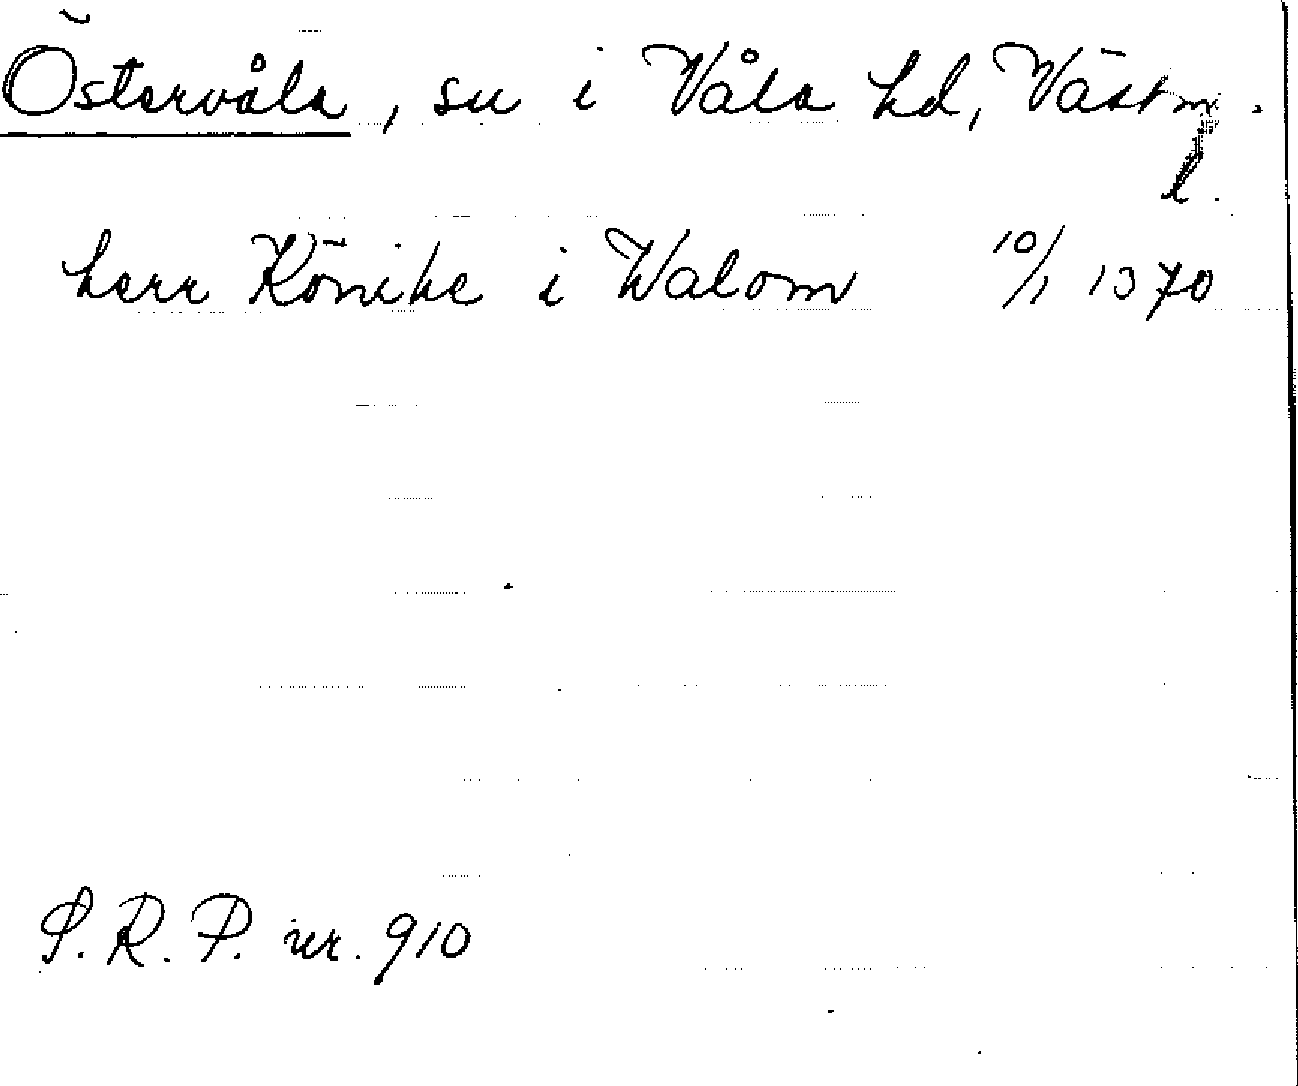 Östervåla, sn i Våla hd, Västm.
l.
herr Könike i Walom 10/1 1370
S.R.P. nr. 910